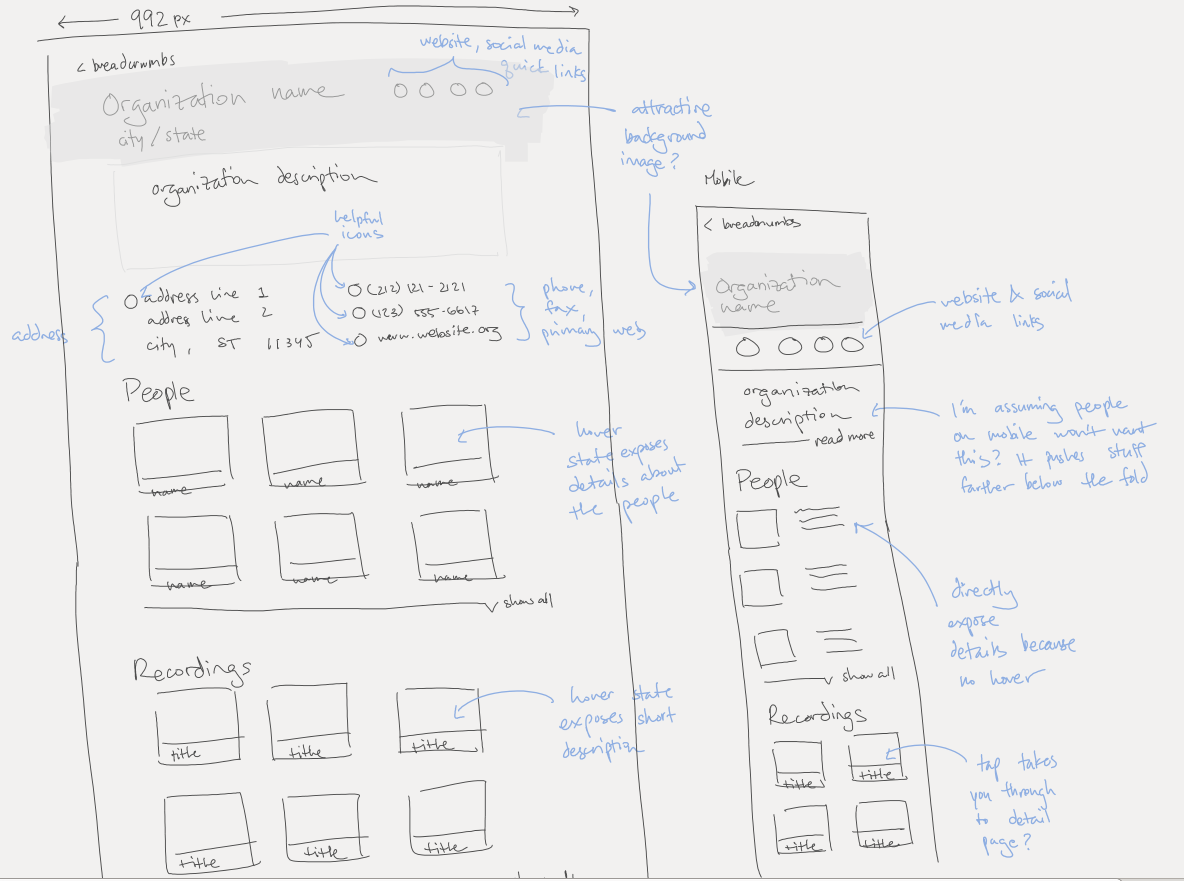 992 px
< breadcrumbs
website, social media
quick links
Organization name
city / state
organization description
helpful
icons
address
address line 1
addres line 2
city, ST 11345
(212) 121-2121
(123) 555-6617
www.website.org
phone,
fax,
primary web
People
name
name
name
name
name
name
hover
state exposes
details about
the people
show all
Recordings
title
title
title
hover state
exposes short
description
title
title
title
attractive
background
image?
Mobile
< breadcrumbs
Organization
name
website & social
media links
organization
description
read more
I'm assuming people
on mobile won't want
this? It pushes stuff
farther below the fold
People
directly
expose
details because
no hover
show all
Recordings
title
title
title
title
tap takes
you through
to detail
page?